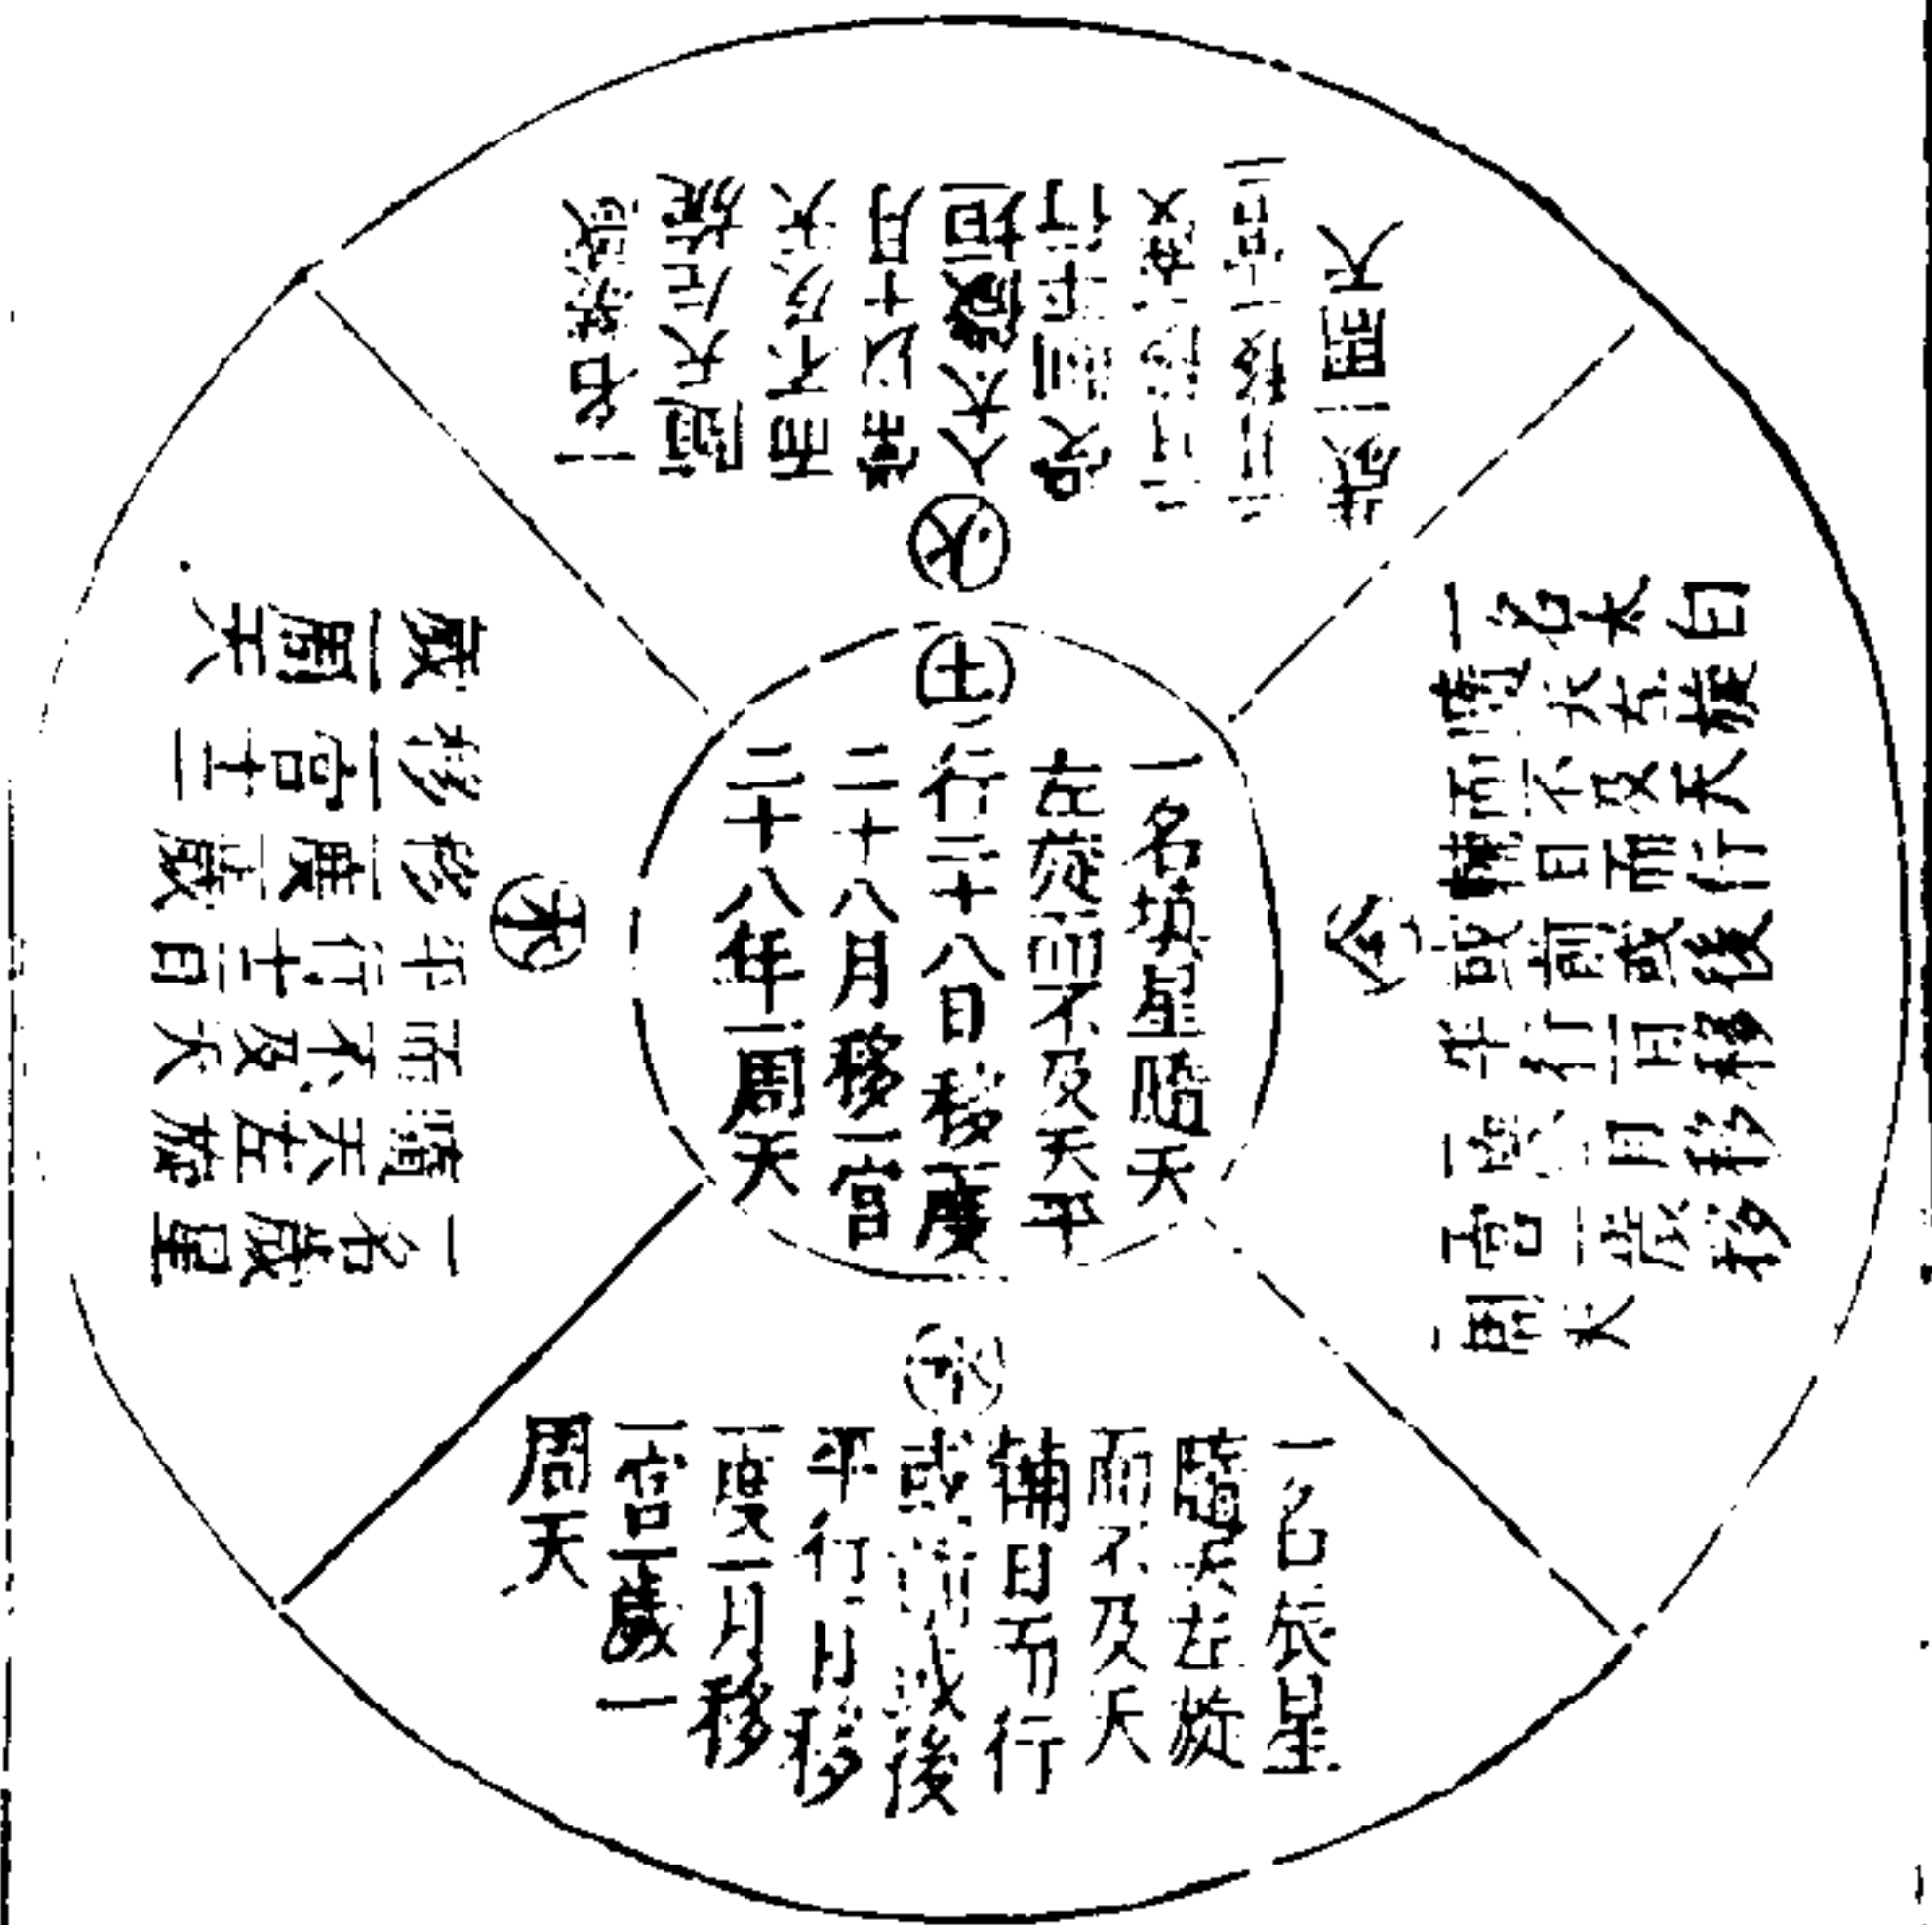 土
一名填星隨天
左旋而不及天平
行二十八日移一度
二十八月移一宮
二十八年一周天
火
一名熒惑
隨天左旋
而不及天
常以十月
入太微垣
受制平行
歲一周天
金
一名太白
隨天左旋
而不及天
輔日而行
或前或後
平行一日移
一度一月移
一宮一歲移
一周天
水
一名辰星
隨天左旋
而不及天
輔日而行
或前或後
平行一日移
一度一月移
一宮一歲一
周天
木
一名歲星
隨天左旋
而不及天
平行十二日
移一度一歲
移一宮十二
歲一周天